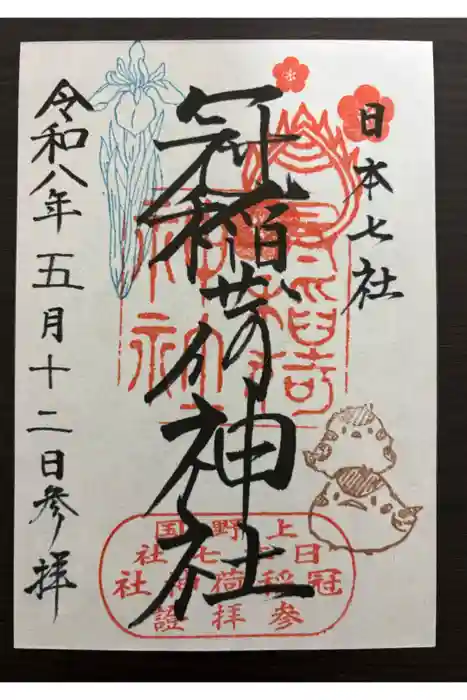 日本七社
冠稲荷神社
令和八年五月十二日参拝
上野国
日本七社
冠稲荷神社
参拝證